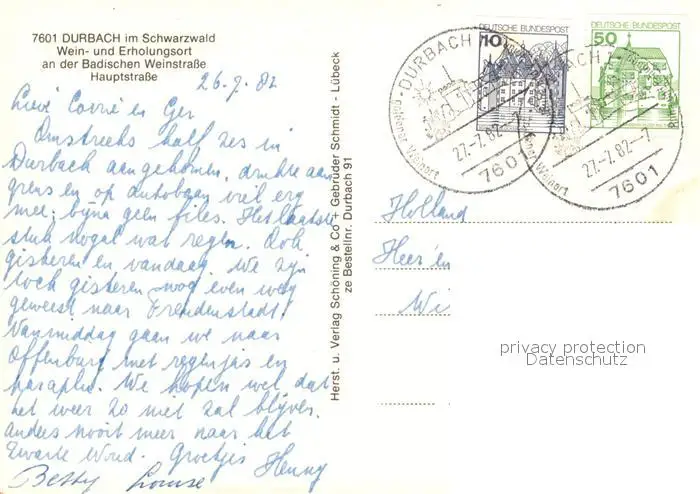 7601 DURBACH im Schwarzwald
Wein- und Erholungsort
an der Badischen Weinstraße
Hauptstraße
26.7.82
Lieve Corrie en Ger
Omstreeks half zes in
Durbach aangekomen, drukte aan
grens en op autobaan viel erg
mee; bijna geen files. Het laatste
stuk nogal wat regen. Ook
gisteren en vandaag. We zijn
toch gisteren nog even weg
geweest naar Freudenstadt!
Vanmiddag gaan we naar
Offenburg met regenjas en
paraplu. We hopen wel dat
het weer zo niet zal blijven.
anders nooit meer naar het
Zwarte Woud. Groetjes Henny
Betty Louise
Herst. u. Verlag Schöning & Co + Gebrüder Schmidt - Lübeck
ze Bestellnr. Durbach 91
DEUTSCHE BUNDESPOST
10
DEUTSCHE BUNDESPOST
50
DURBACH
27.-7.82.-7
7601
27.-7.82.-7
7601
Holland
Heer en
Wi
privacy protection
Datenschutz